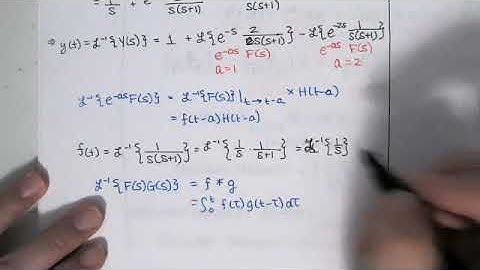 = 1/S + e S(S+1) S(S+1)
⇒ y(t) = ℒ⁻¹{Y(s)} = 1 + ℒ{e^-s 2/S(S+1)} - ℒ{e^-2s 1/S(S+1)}
e^-as F(s) e^-as F(s)
a=1 a=2
ℒ⁻¹{e^-as F(s)} = ℒ⁻¹{F(s)}|t→t-a × H(t-a)
= f(t-a)H(t-a)
f(t) = ℒ⁻¹{1/S(S+1)} = ℒ⁻¹{1/S · 1/S+1} = ℒ⁻¹{1/S}
ℒ⁻¹{F(s)G(s)} = f * g
= ∫₀ᵗ f(τ)g(t-τ)dτ